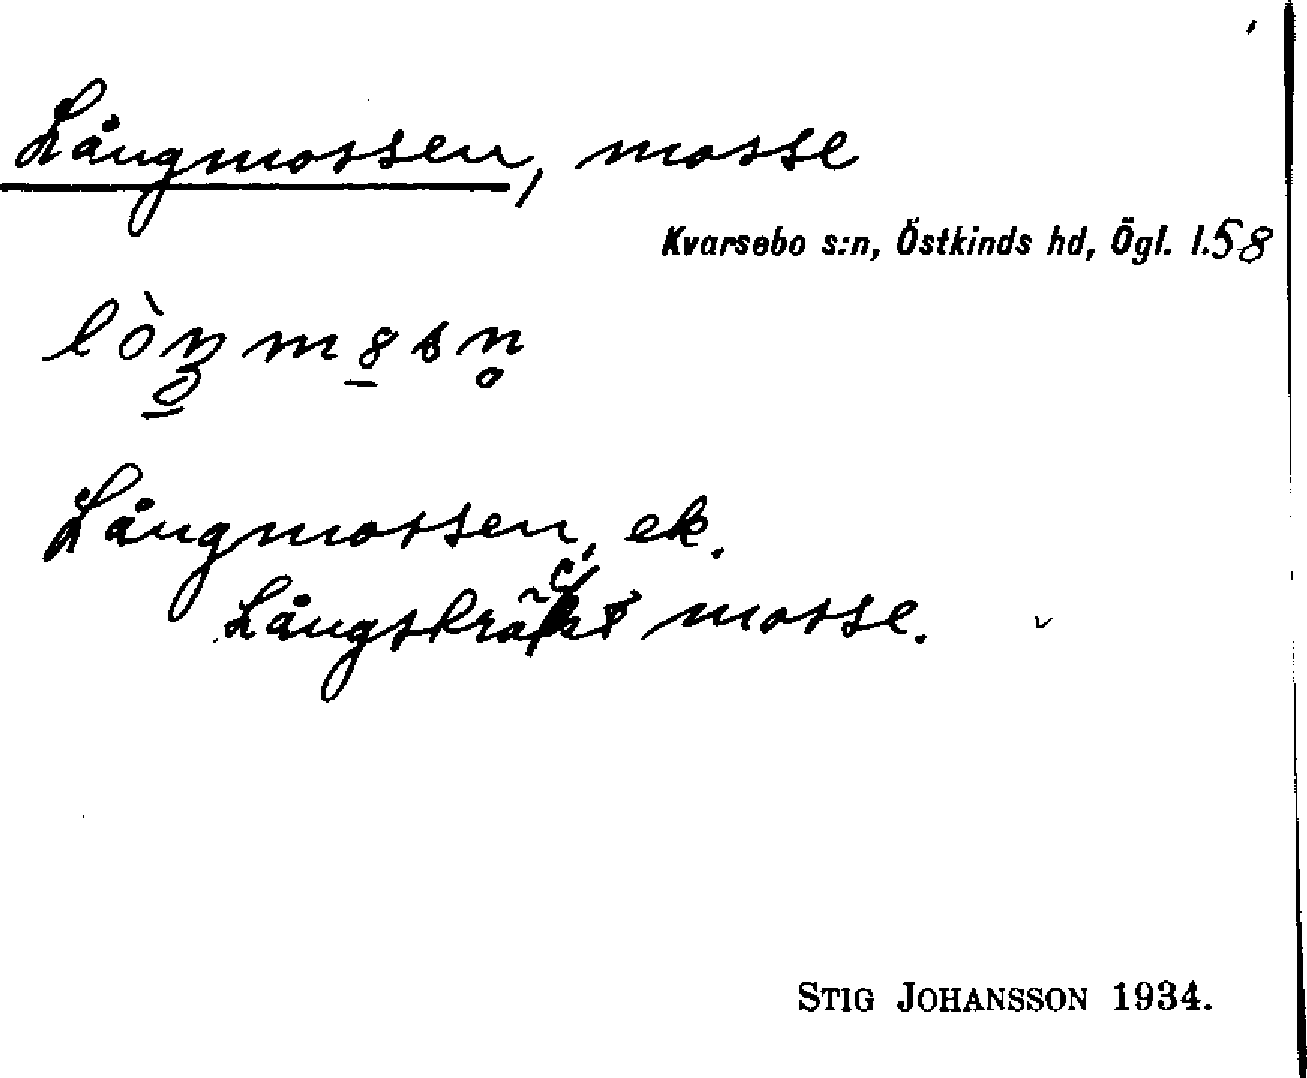 Långmossen, mosse
Kvarsebo s:n, Östkinds hd, Ögl. l.58
Långmossen, ek.
Långsträckt mosse.
STIG JOHANSSON 1934.